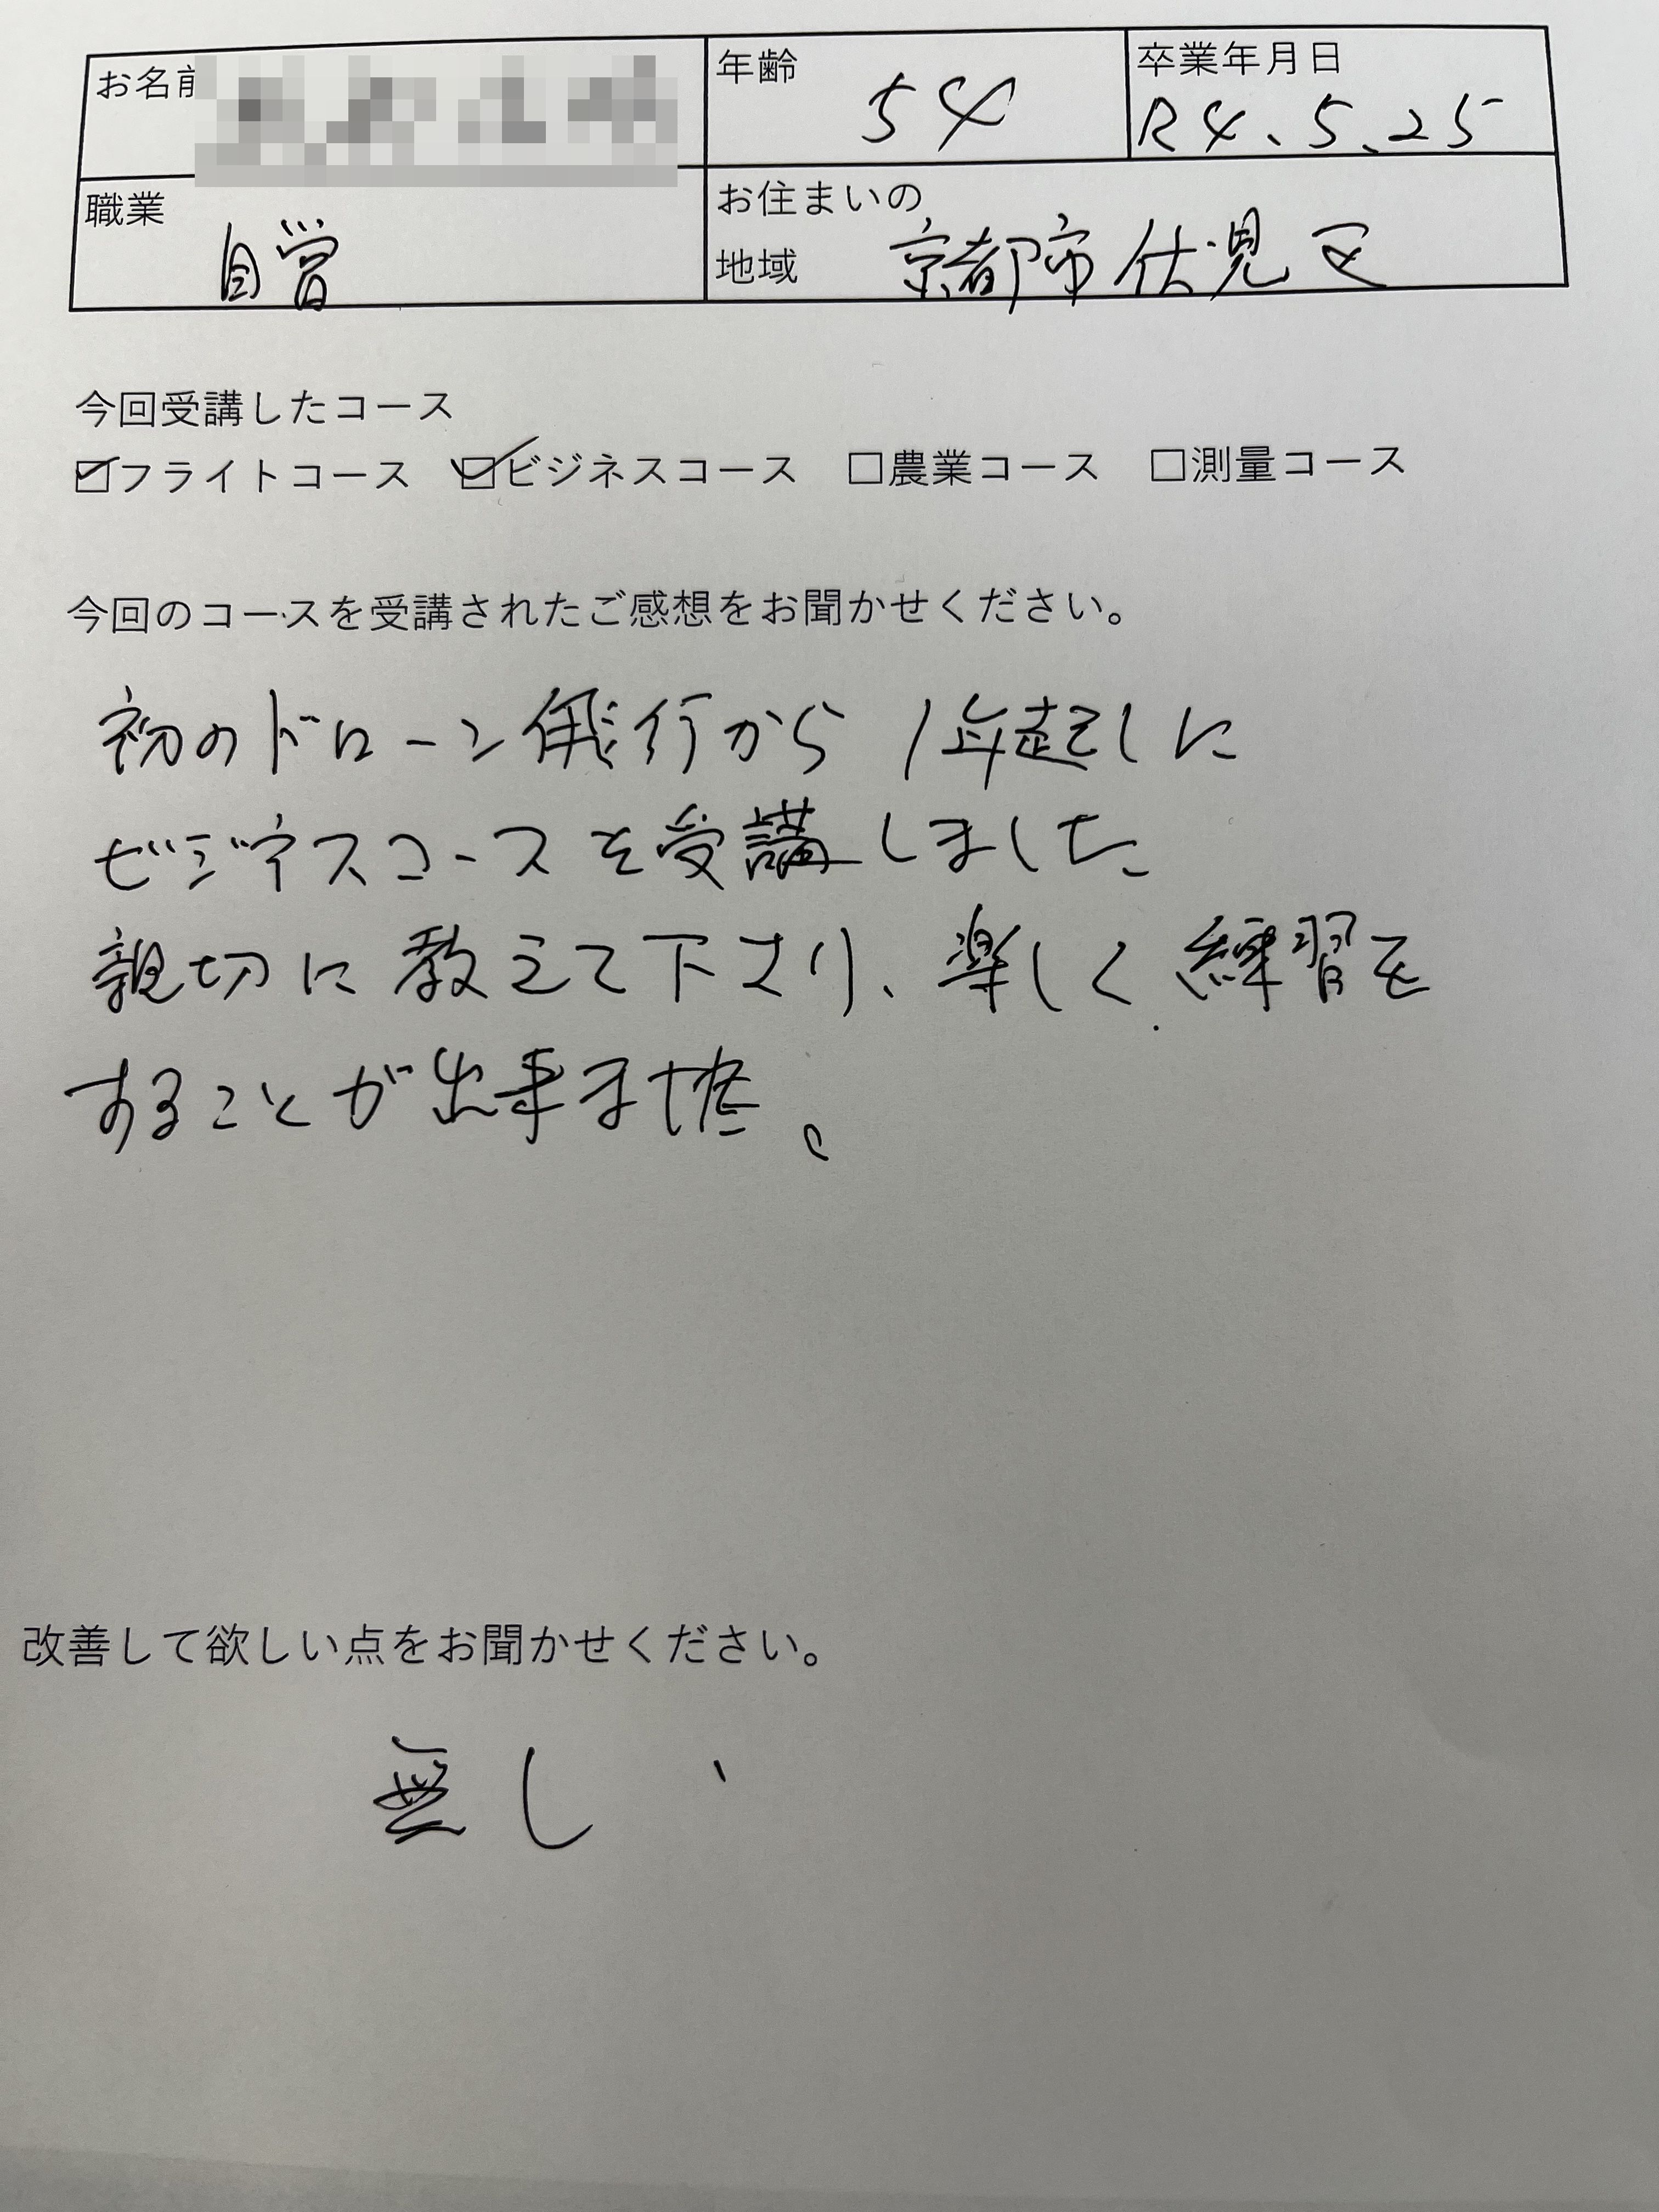 お名前
年齢 54
卒業年月日 R4、5、25
職業 自営
お住まいの
地域 京都市伏見区
今回受講したコース
☑フライトコース ☑ビジネスコース □農業コース □測量コース
今回のコースを受講されたご感想をお聞かせください。
初のドローン飛行から 1年起しに
ビジネスコースを受講しました
親切に教えて下さり、楽しく練習を
することが出来ました。
改善して欲しい点をお聞かせください。
無し